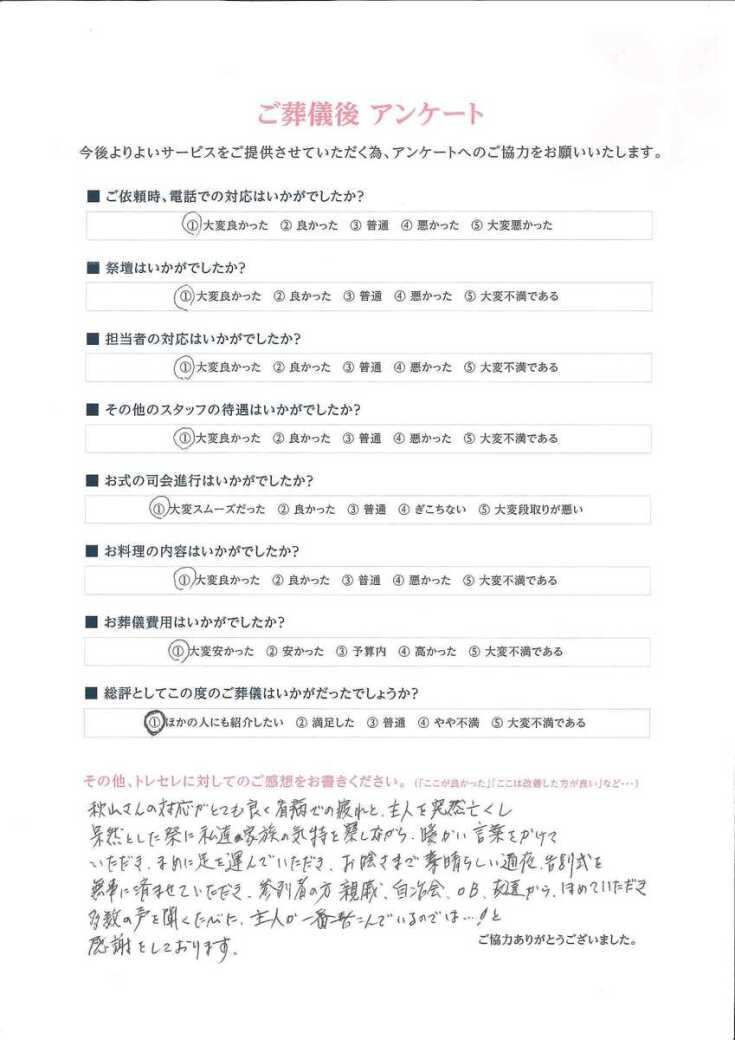 ご葬儀後 アンケート
今後よりよいサービスをご提供させていただく為、アンケートへのご協力をお願いいたします。
■ ご依頼時、電話での対応はいかがでしたか?
① 大変良かった ② 良かった ③ 普通 ④ 悪かった ⑤ 大変悪かった
■ 祭壇はいかがでしたか?
① 大変良かった ② 良かった ③ 普通 ④ 悪かった ⑤ 大変不満である
■ 担当者の対応はいかがでしたか?
① 大変良かった ② 良かった ③ 普通 ④ 悪かった ⑤ 大変不満である
■ その他のスタッフの待遇はいかがでしたか?
① 大変良かった ② 良かった ③ 普通 ④ 悪かった ⑤ 大変不満である
■ お式の司会進行はいかがでしたか?
① 大変スムーズだった ② 良かった ③ 普通 ④ ぎこちない ⑤ 大変段取りが悪い
■ お料理の内容はいかがでしたか?
① 大変良かった ② 良かった ③ 普通 ④ 悪かった ⑤ 大変不満である
■ お葬儀費用はいかがでしたか?
① 大変安かった ② 安かった ③ 予算内 ④ 高かった ⑤ 大変不満である
■ 総評としてこの度のご葬儀はいかがだったでしょうか?
① ほかの人にも紹介したい ② 満足した ③ 普通 ④ やや不満 ⑤ 大変不満である
その他、トレセレに対してのご感想をお書きください。(「ここが良かった」「ここは改善した方が良い」など…)
秋山さんの対応がとても良く看病での疲れと、主人を突然亡くし
呆然とした祭に私達家族の気持を癒しながら、暖かい言葉をかけて
いただき、まめに足を運んでいただき、お陰さまで素晴らしい通夜、告別式を
無事に済ませていただき、参列者の方 親戚、自治会、OB、友達から、ほめていただき
多数の声を聞くたびに、主人が一番喜こんでいるのでは…!と
感謝をしております。
ご協力ありがとうございました。